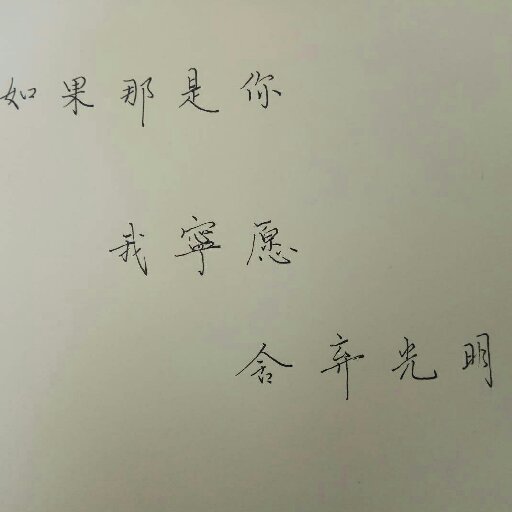 如果那是你
我寧愿
舍弃光明